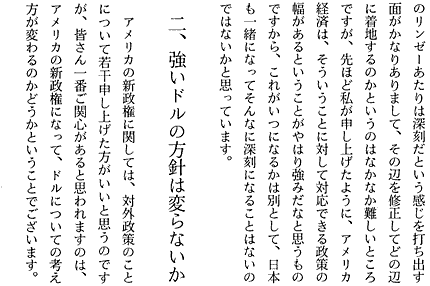 のリンゼーあたりは深刻だという感じを打ち出す
面がかなりありまして、その辺を修正してどの辺
に着地するのかというのはなかなか難しいところ
ですが、先ほど私が申し上げたように、アメリカ
経済は、そういうことに対して対応できる政策の
幅があるということがやはり強みだなと思うもの
ですから、これがいつになるかは別として、日本
も一緒になってそんなに深刻になることはないの
ではないかと思っています。
二、強いドルの方針は変らないか
アメリカの新政権に関しては、対外政策のこと
について若干申し上げた方がいいと思うのです
が、皆さん一番ご関心があると思われますのは、
アメリカの新政権になって、ドルについての考え
方が変わるのかどうかということでございます。